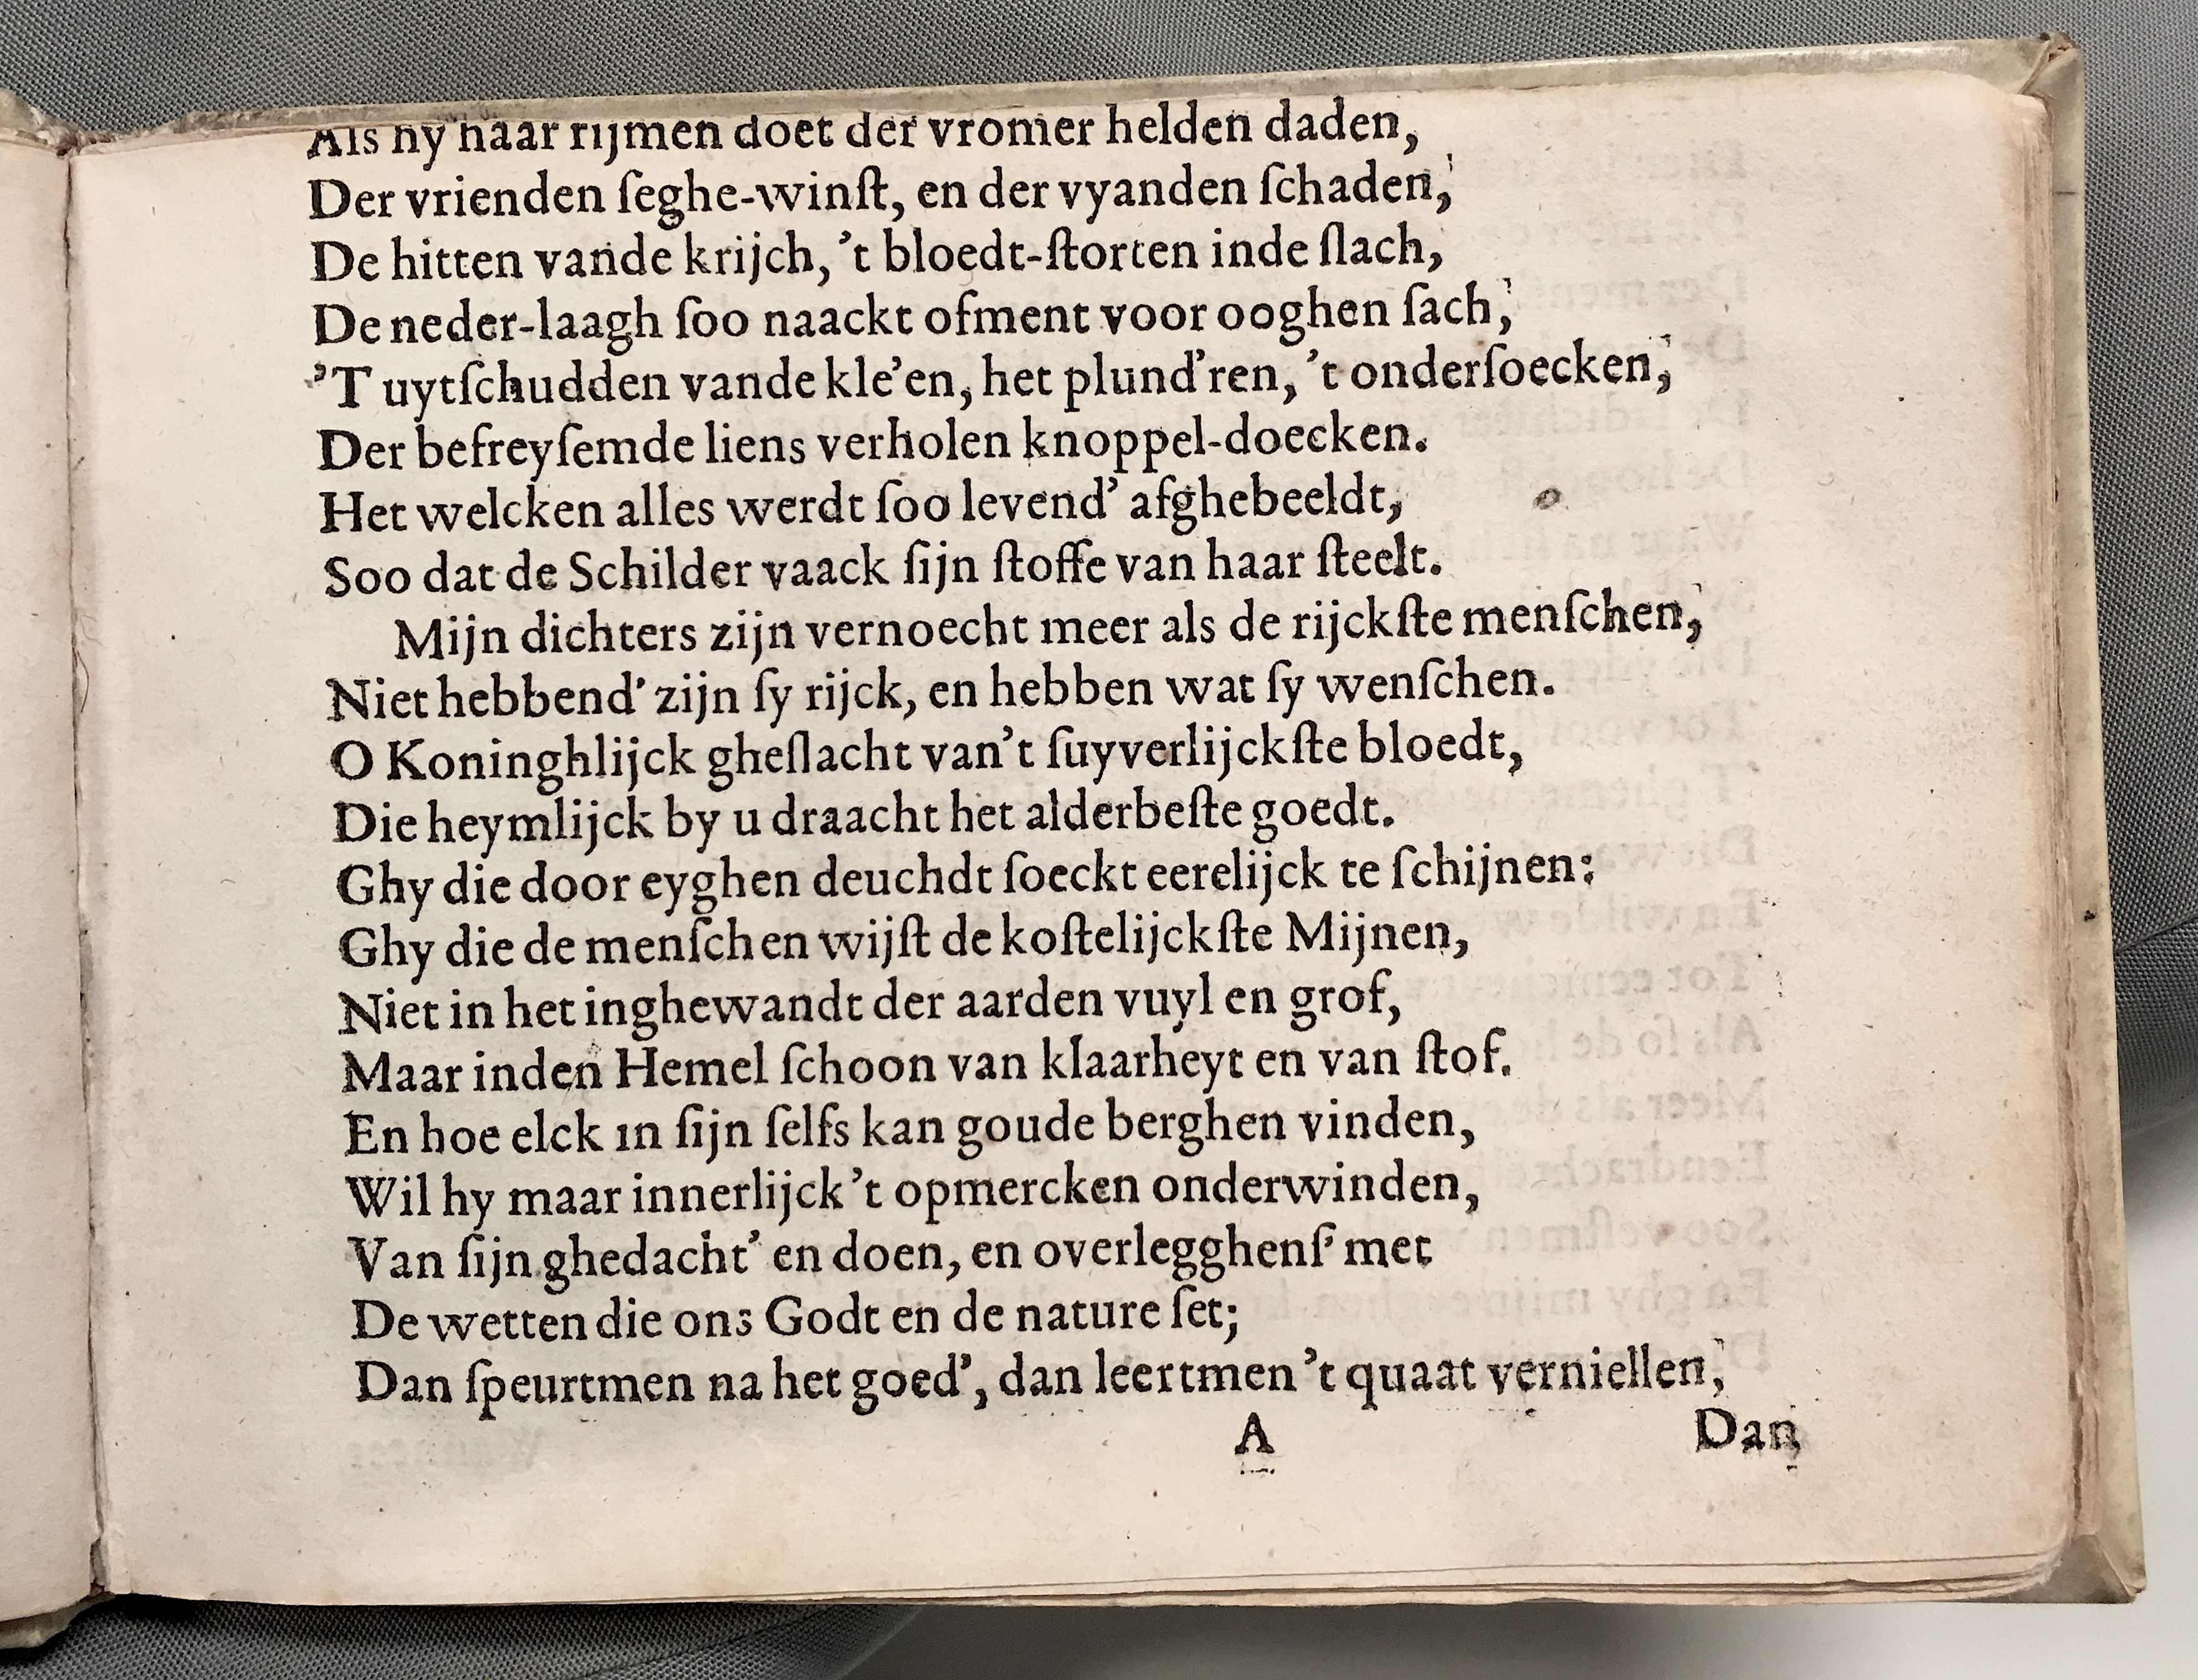 Als hy haar rijmen doet der vromer helden daden,
Der vrienden ſeghe-winſt, en der vyanden ſchaden,
De hitten vande krijch, ’t bloedt-ſtorten inde ſlach,
De neder-laagh ſoo naackt ofment voor ooghen ſach,
’T uytſchudden vande kle’en, het plund’ren, ’t onderſoecken,
Der befreyſemde liens verholen knoppel-doecken.
Het welcken alles werdt ſoo levend’ afghebeeldt,
Soo dat de Schilder vaack ſijn ſtoffe van haar ſteelt.
Mijn dichters zijn vernoecht meer als de rijckſte menſchen,
Niet hebbend’ zijn ſy rijck, en hebben wat ſy wenſchen.
O Koninghlijck gheſlacht van’t ſuyverlijckſte bloedt,
Die heymlijck by u draacht het alderbeſte goedt.
Ghy die door eyghen deuchdt ſoeckt eerelijck te ſchijnen:
Ghy die de menſchen wijſt de koſtelijckſte Mijnen,
Niet in het inghewandt der aarden vuyl en grof,
Maar inden Hemel ſchoon van klaarheyt en van ſtof.
En hoe elck in ſijn ſelfs kan goude berghen vinden,
Wil hy maar innerlijck ’t opmercken onderwinden,
Van ſijn ghedacht’ en doen, en overlegghenſ’ met
De wetten die ons Godt en de nature ſet;
Dan ſpeurtmen na het goed’, dan leertmen ’t quaat verniellen,
A
Dan